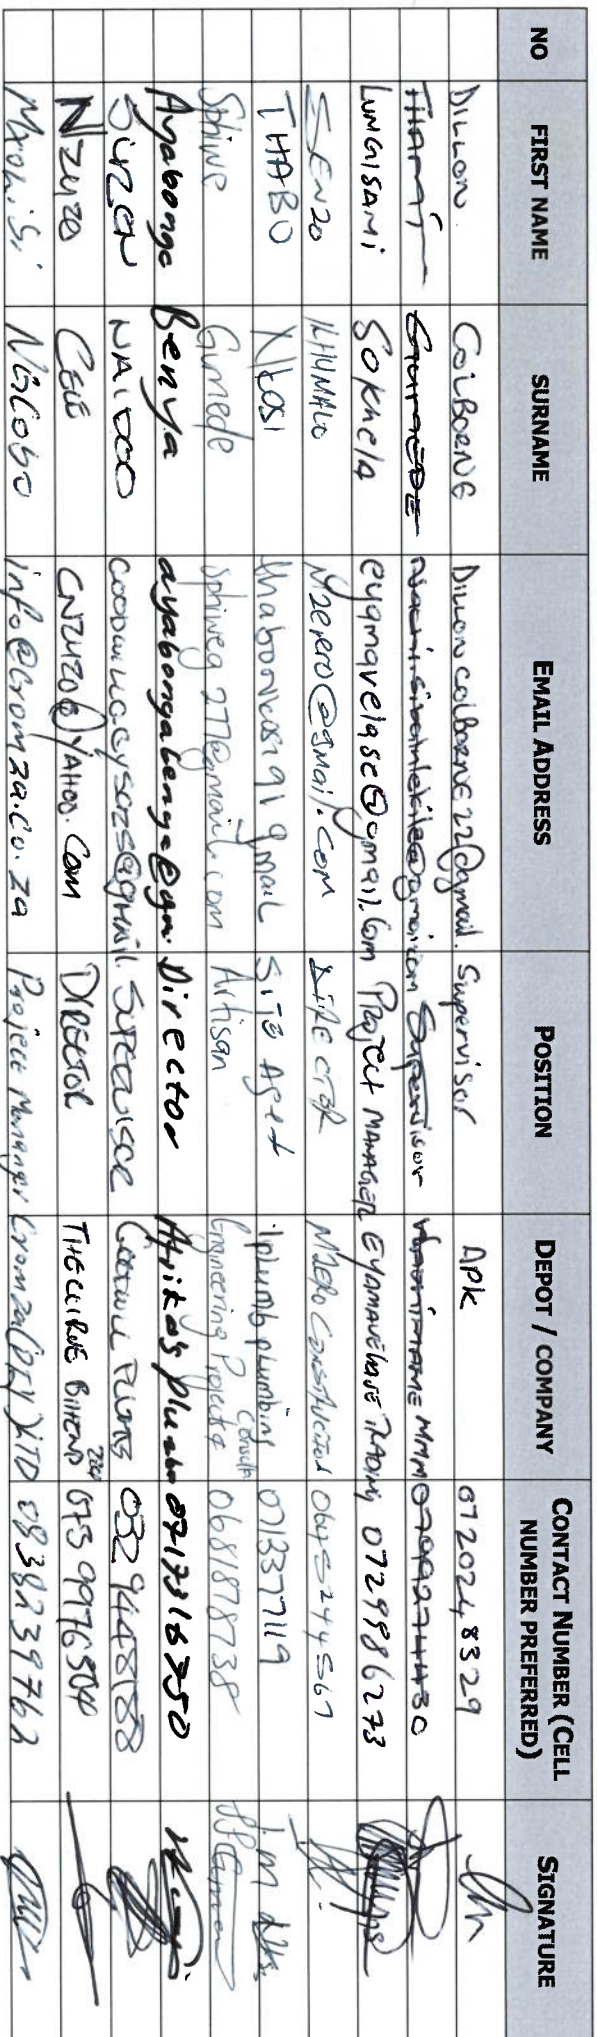 NO FIRST NAME SURNAME EMAIL ADDRESS POSITION DEPOT / COMPANY CONTACT NUMBER (CELL NUMBER PREFERRED) SIGNATURE
DILLON COLBORNE Dilloncolborne22@gmail. Supervisor APK 0720248329
THAMI GUMEDE Supervisor MMM 0799274430
LUNGISANI Sokhela eyamavelase@gmail.com PROJECT MANAGER EYAMAVELASE TRADING 0729986273
SENZO KHUMALO Mzerero@gmail.com DIRECTOR Mzero Construction 0645244567
THABO Nkosi thabonkosi91gmail SITE Agent Iplumb plumbing 071337719
Sphiwe Gumede Sphiweg277@gmail.com Artisan Engineering Projects Consult 0681878738
Ayabonga Benya ayabongabenya@gm. Director Afrikas plumb 0717316750
SUREN NAIDOO SUPERVISOR 0329448188
NZUZO CELE CNZUZO@YAHOO.COM DIRECTOR
Mxolisi Ngcobo info@Cromza.co.za Project Manager Cromza (PTY) LTD 0838239762